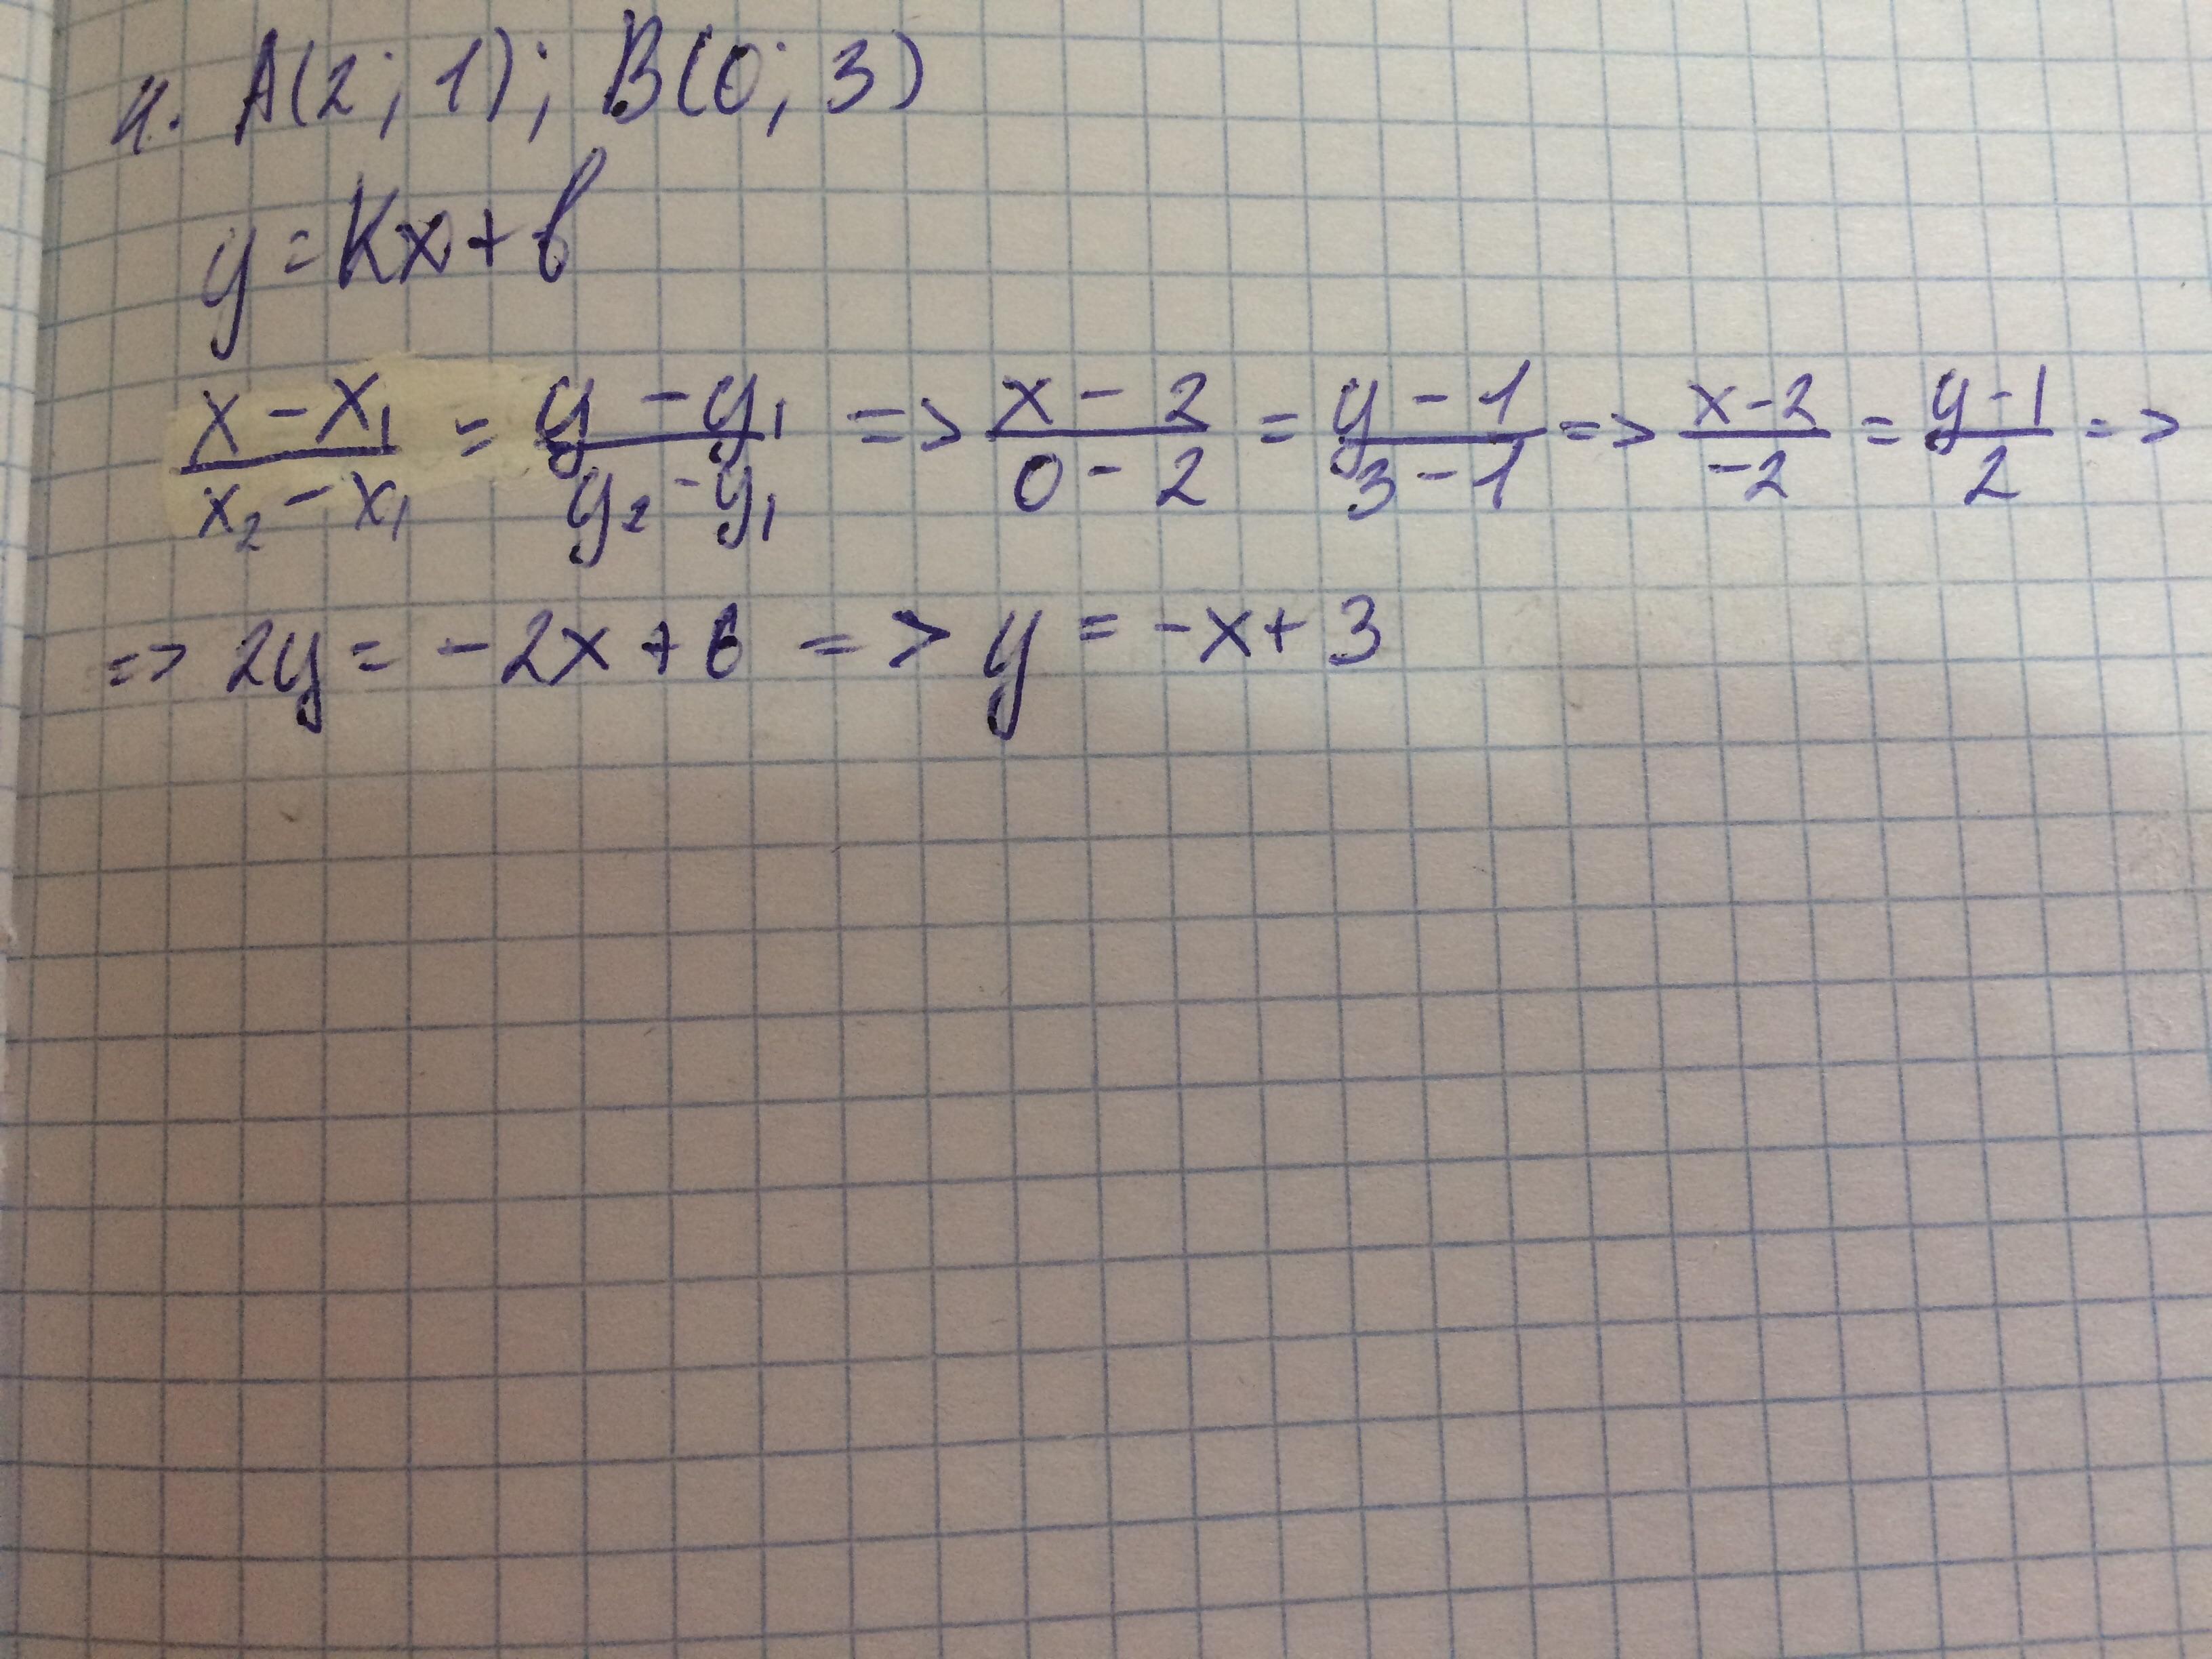 4. A(2; 1); B(0; 3)
y = Kx + b
(x - x₁)/(x₂ - x₁) = (y - y₁)/(y₂ - y₁) => (x - 2)/(0 - 2) = (y - 1)/(3 - 1) => (x - 2)/(-2) = (y - 1)/2 =>
=> 2y = -2x + 6 => y = -x + 3